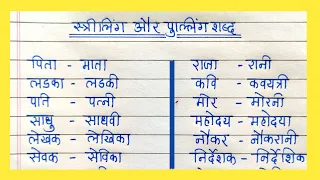 स्त्रीलिंग और पुल्लिंग शब्द
पिता - माता
लडका - लडकी
पति - पत्नी
साधु - साधवी
लेखक - लेखिका
सेवक - सेविका
राजा - रानी
कवि - कवयत्री
मोर - मोरनी
महोदय - महोदया
नौकर - नौकरानी
निर्देशक - निर्देशिक